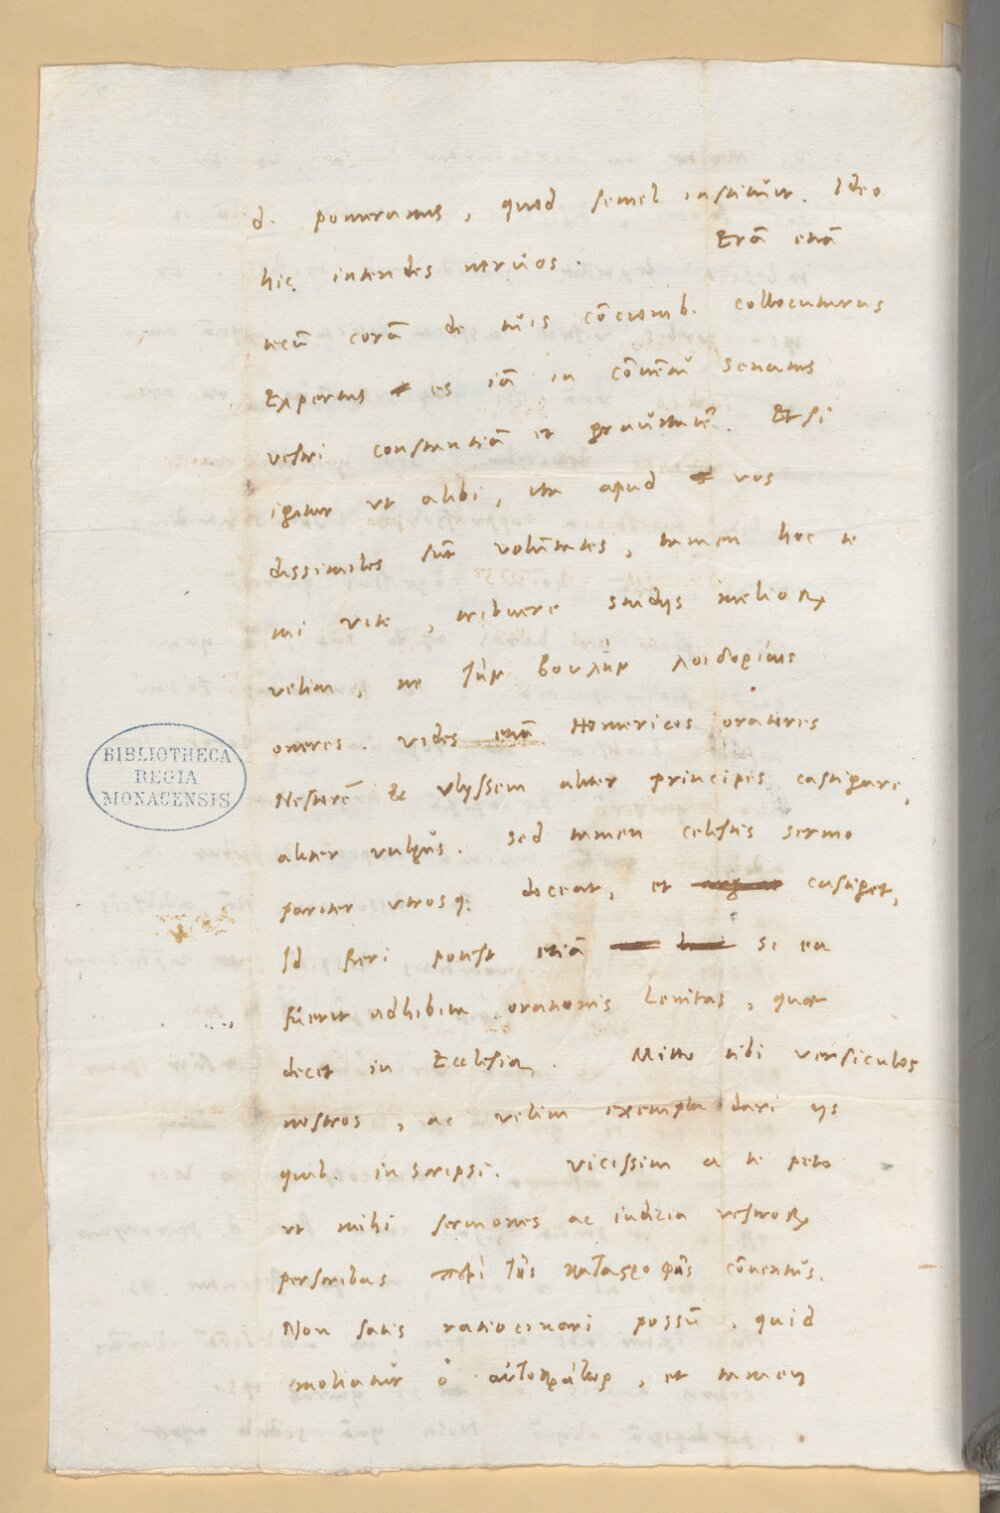 d. pomeranus, quod semel instituit. Ideo
hic intendes nervos. Erā etiā
tecū corā de tuis cōcionib. collocuturus
Expertus es iā in cōventu Senatus
vestri constantiā et gravitatē. Etsi
igitur ut alibi, ita apud vos
dissimiles sūt volūtates, tamen hoc te
mi vite, tribuere studijs melioRꝝ
velim, ne τὴν βουλὴν λοιδορίαις
oneres. vides etiā Homericos oratores
Nestorē & Ulyssem aliter principes castigare,
aliter vulgus. Sed tamen celestis sermo
pariter utrosq. doceat, et castiget,
Id fieri potest etiā si ea
fuerit adhibita orationis Lenitas, quae
decet in Ecclesia. Mitto tibi versiculos
nostros, ac velim exempla dari ijs
quib. inscripsi. Vicissim a te peto
ut mihi sermones ac iudicia vestroRꝝ
perscribas περὶ τῆς καταστροφῆς cōventus.
Non satis ratiocinari possū, quid
moliatur ὁ αὐτοκράτωρ, et tamen
BIBLIOTHECA
REGIA
MONACENSIS